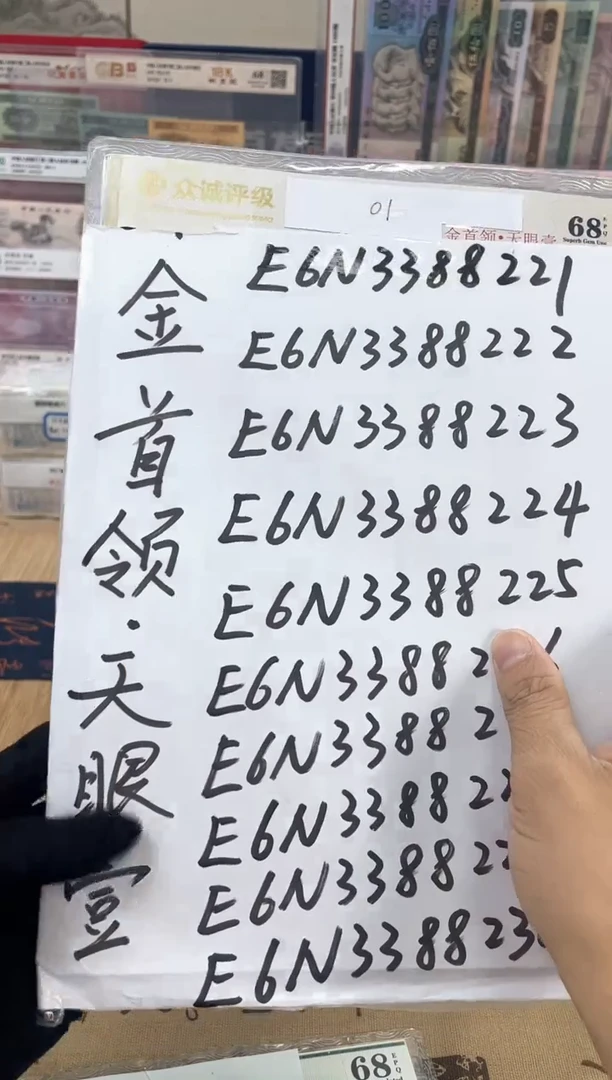 众诚评级
01
68
EPQ
Superb Gem Unc
金首领·天眼壹
金首领·天眼壹
E6N3388221
E6N3388222
E6N3388223
E6N3388224
E6N3388225
E6N33882
E6N33882
E6N338822
E6N338822
E6N338823
68
EPQ